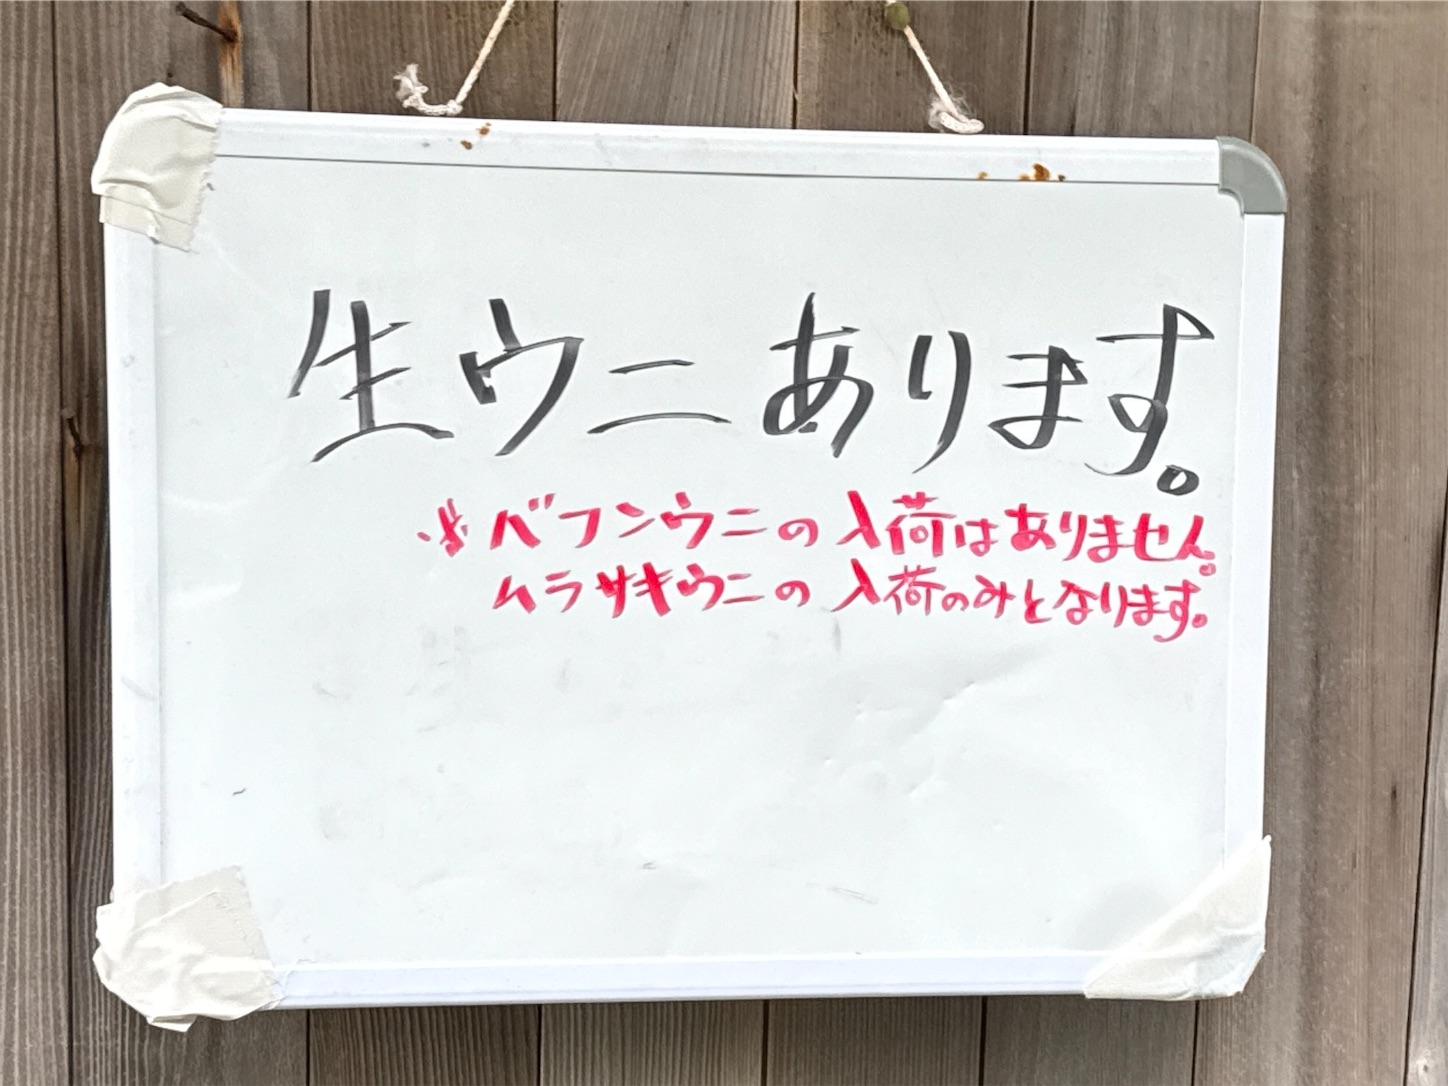 生ウニあります。
※バフンウニの入荷はありません。
ムラサキウニの入荷のみとなります。